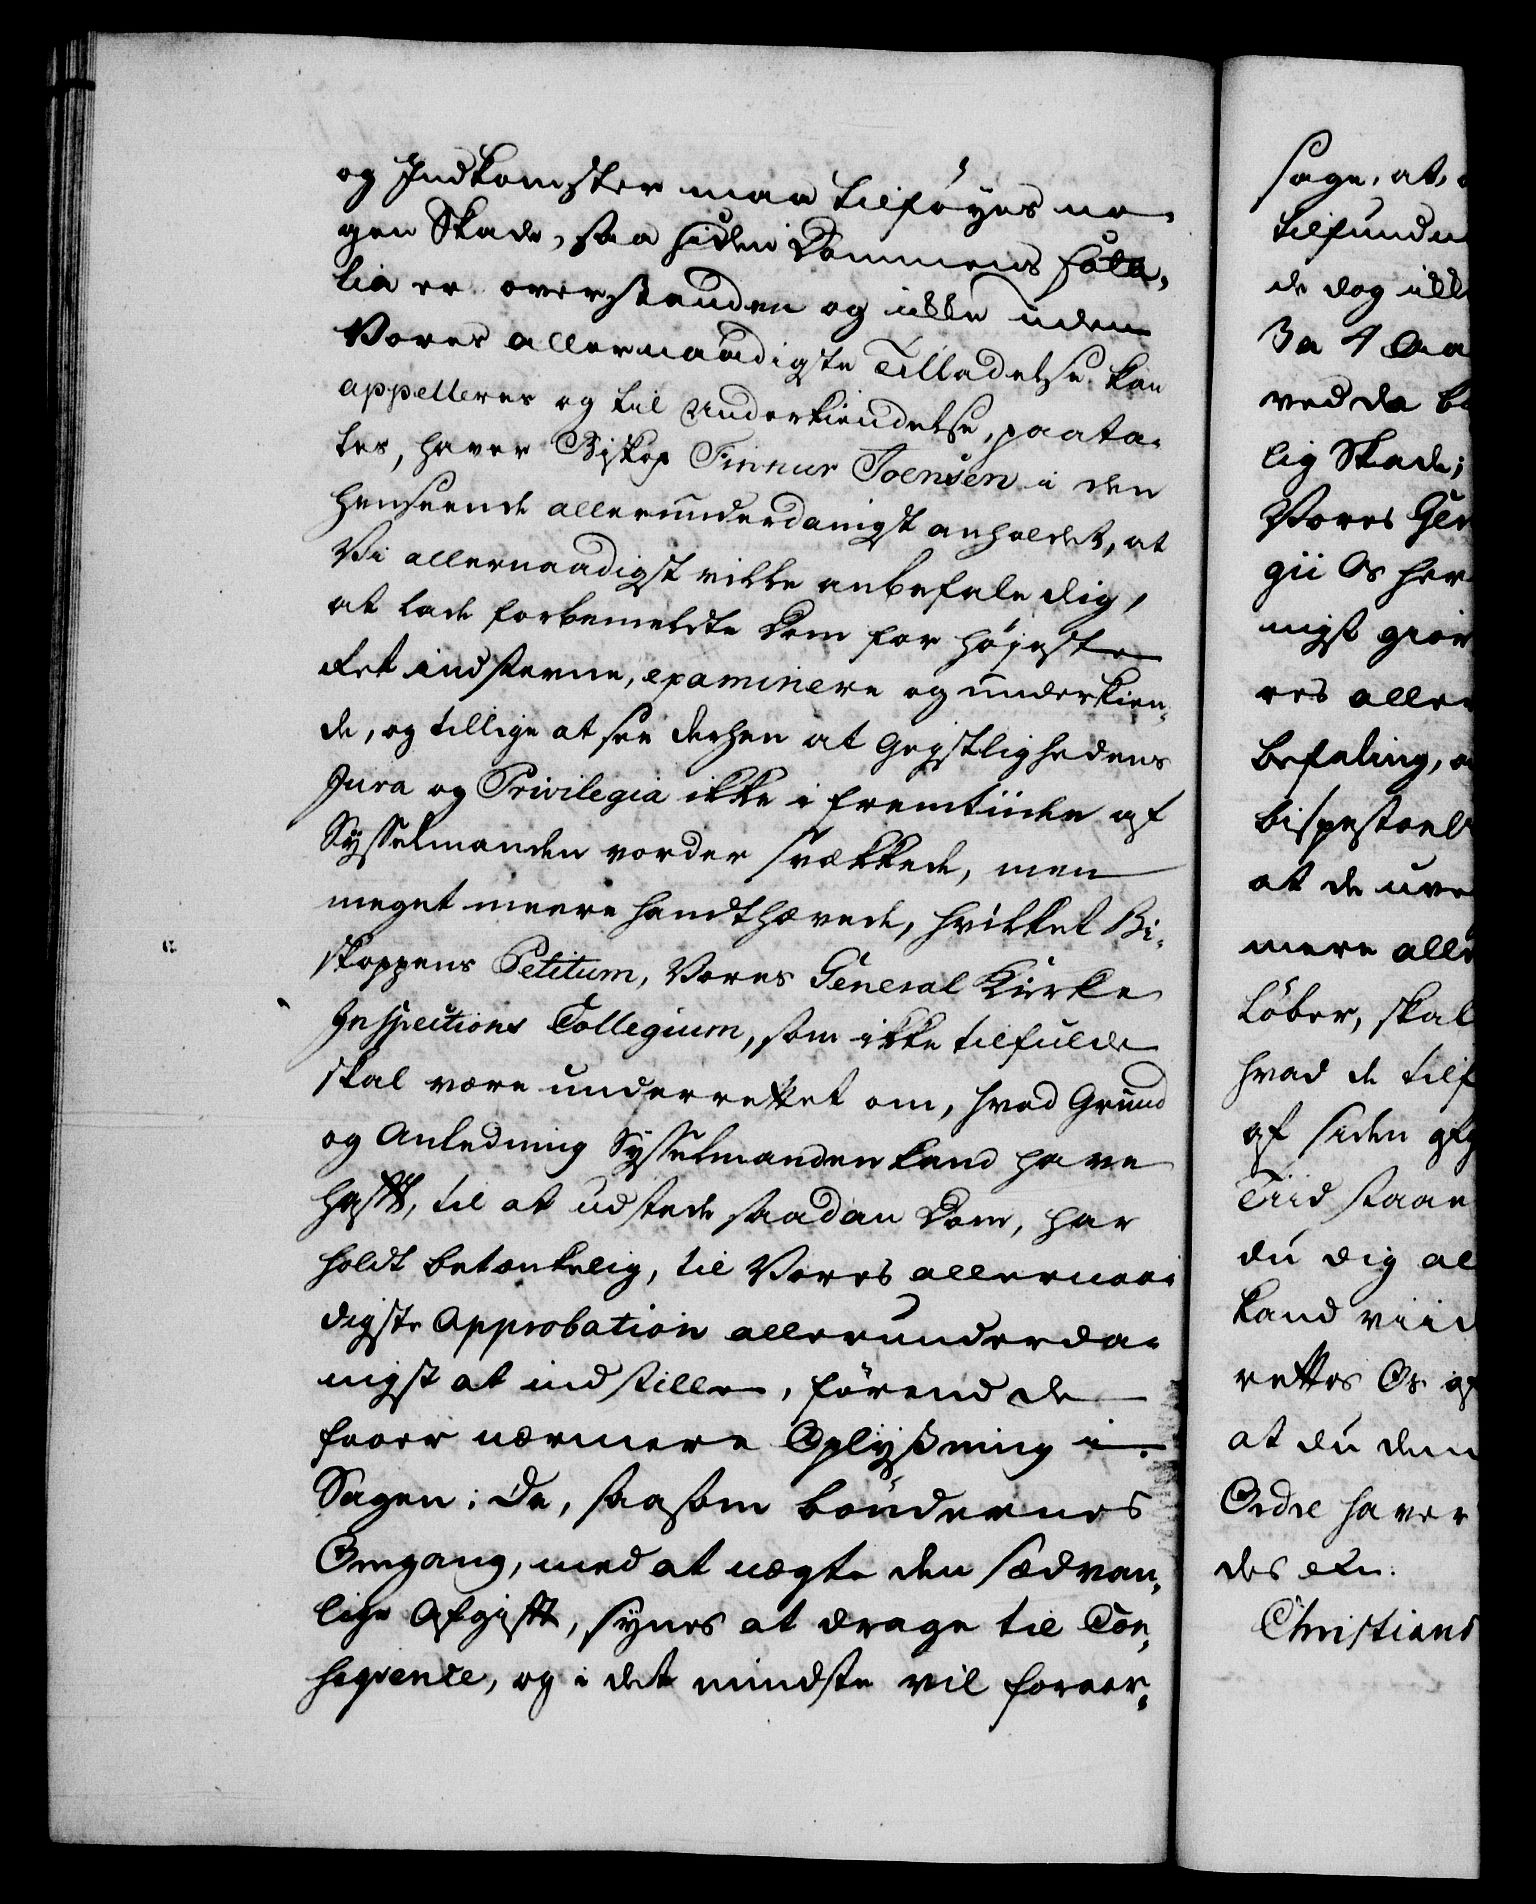 og Indkomster maa tilføyes no-
gen Skade, saa siden Dommens fata-
lia er overstanden og ikke uden
Vores allernaadigste Tilladelse kan
appelleres og til Underkiendelse, paata-
les, haver Biskop Finnur Joensen i den
henseende allerunderdanigst anholdet, at
Vi allernaadigst vilde anbefale dig,
at lade forbemeldte Dom for højeste
Ret indstevne, examinere og underkien-
de, og tillige at see derhen at Geystlighedens
Jura og Privilegia ikke i fremtiiden af
Sysselmanden vorder svækkede, men
meget meere handthævede, hvilket Bi-
skoppens Petitum, Vores General Kirke
Inspections Collegium, som ikke tilfulde
skal være underrettet om, hvad Grund
og Anledning Sysselmanden kand have
hafft, til at udstede saadan Dom, har
holdt betænkelig, til Vores allernaa-
digste Approbation allerunderda-
nigst at indstille, førend de
faaer nærmere Oplysning i
Sagen; Da, saasom bøndernes
Omgang, med at nægte den sædvan-
lige Afgifft, synes at drage til Con-
seqvence, og i det mindste vil foraar-
sage, at
tilfunden
de dog ikke
3 a 4 Aa
ved da
lig Skade;
Vores Gen
gii Os her
nigst giør
res aller
befaling,
bispestoel
at de
mere aller
løber, skal
hvad de tilf
af siden
Tiid staae
du dig al
kand viid
rettes Os
at du den
Ordre haver
des etc:
Christians